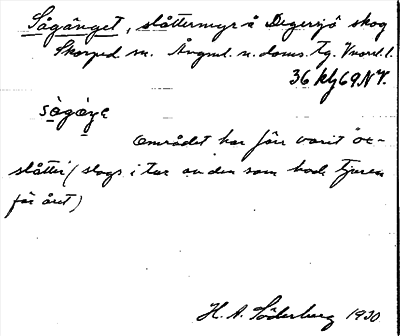 Sågånget, slåttermyr å Degersjö skog
Skorped sn. Ångml. n. doms. tg. Vnorrl. l.
36 klj 69 NV.
sågåŋe
Området har förr varit "ox-
slåtter" (slogs i tur av den som hade tjuren
för året)
H. A. Söderberg 1930